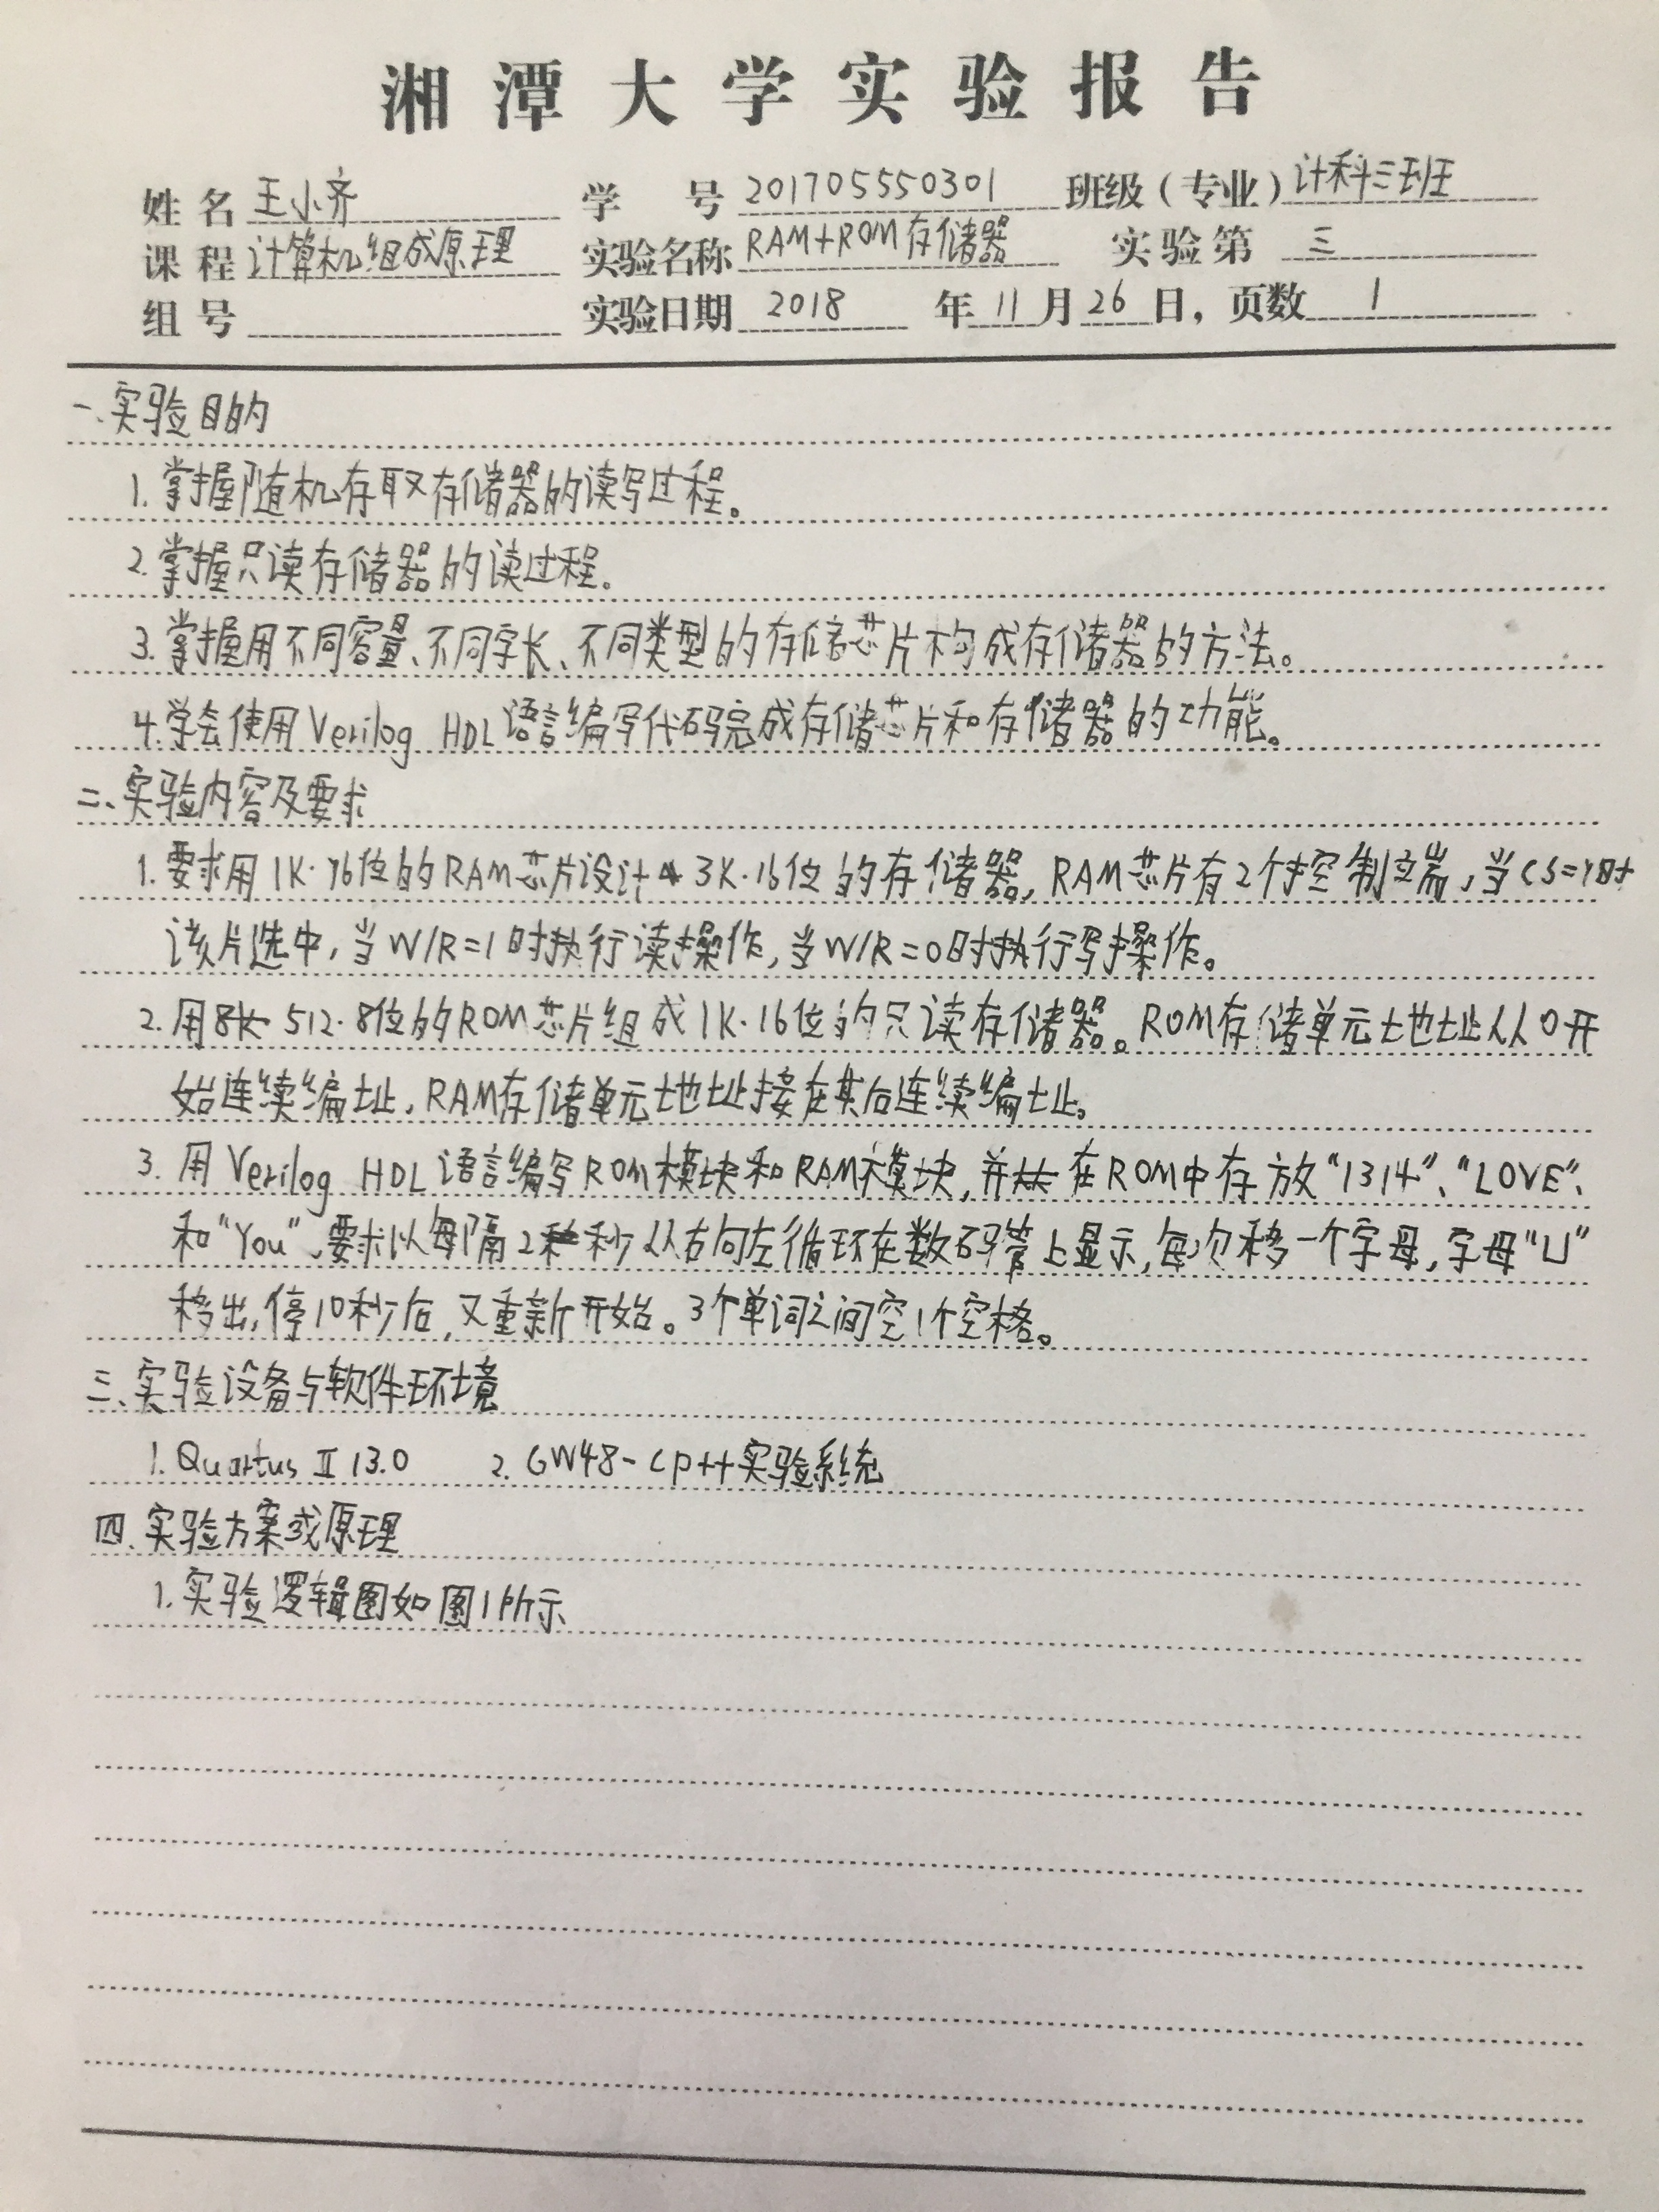 湘潭大学实验报告
姓名 王小齐 学号 201705550301 班级（专业）计科三班
课程 计算机组成原理 实验名称 RAM+ROM存储器 实验第 三
组号 实验日期 2018 年 11 月 26 日，页数 1
一、实验目的
1. 掌握随机存取存储器的读写过程。
2. 掌握只读存储器的读过程。
3. 掌握用不同容量、不同字长、不同类型的存储芯片构成存储器的方法。
4. 学会使用Verilog HDL语言编写代码完成存储芯片和存储器的功能。
二、实验内容及要求
1. 要求用1K·16位的RAM芯片设计 3K·16位的存储器，RAM芯片有2个控制端，当CS=1时
该片选中，当W/R=1时执行读操作，当W/R=0时执行写操作。
2. 用 512·8位的ROM芯片组成1K·16位的只读存储器。ROM存储单元地址从0开
始连续编址，RAM存储单元地址接在其后连续编址。
3. 用Verilog HDL语言编写ROM模块和RAM模块，并在ROM中存放“1314”、“LOVE”、
和“You”，要求以每隔2秒从右向左循环在数码管上显示，每次移一个字母，字母“U”
移出，停10秒后，又重新开始。3个单词之间空1个空格。
三、实验设备与软件环境
1. Quartus II 13.0 2. GW48-CP++实验系统
四、实验方案或原理
1. 实验逻辑图如图1所示